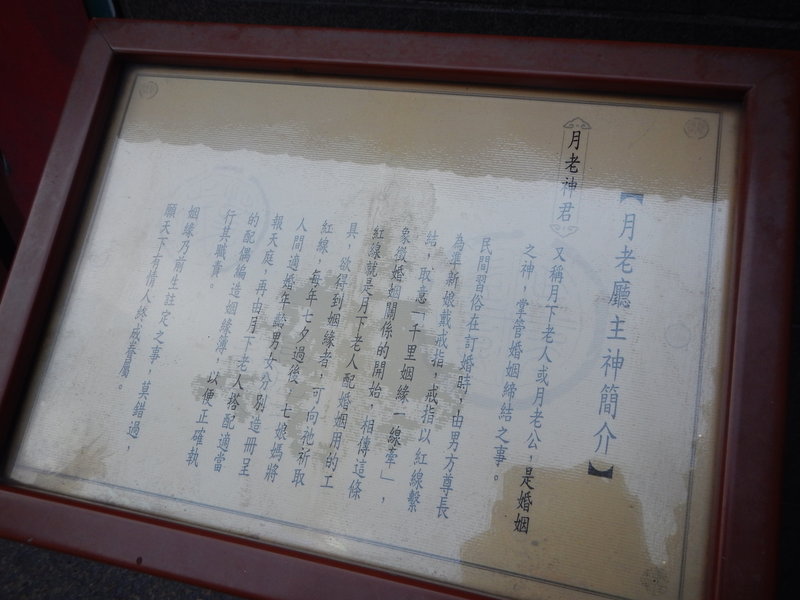 【月老廳主神簡介】
月老神君
又稱月下老人或月老公，是婚姻
之神，掌管婚姻締結之事。
民間習俗在訂婚時，由男方尊長
為準新娘戴戒指，戒指以紅線繫
結，取意「千里姻緣一線牽」，
象徵婚姻關係的開始，相傳這條
紅線就是月下老人配婚姻用的工
具，欲得到姻緣者，可向祂祈取
紅線，每年七夕過後，七娘媽將
人間適婚年齡男女分別造冊呈
報天庭，再由月下老人搭配適當
的配偶編造姻緣簿，以便正確執
行其職責。
姻緣乃前生註定之事，莫錯過，
願天下有情人終成眷屬。